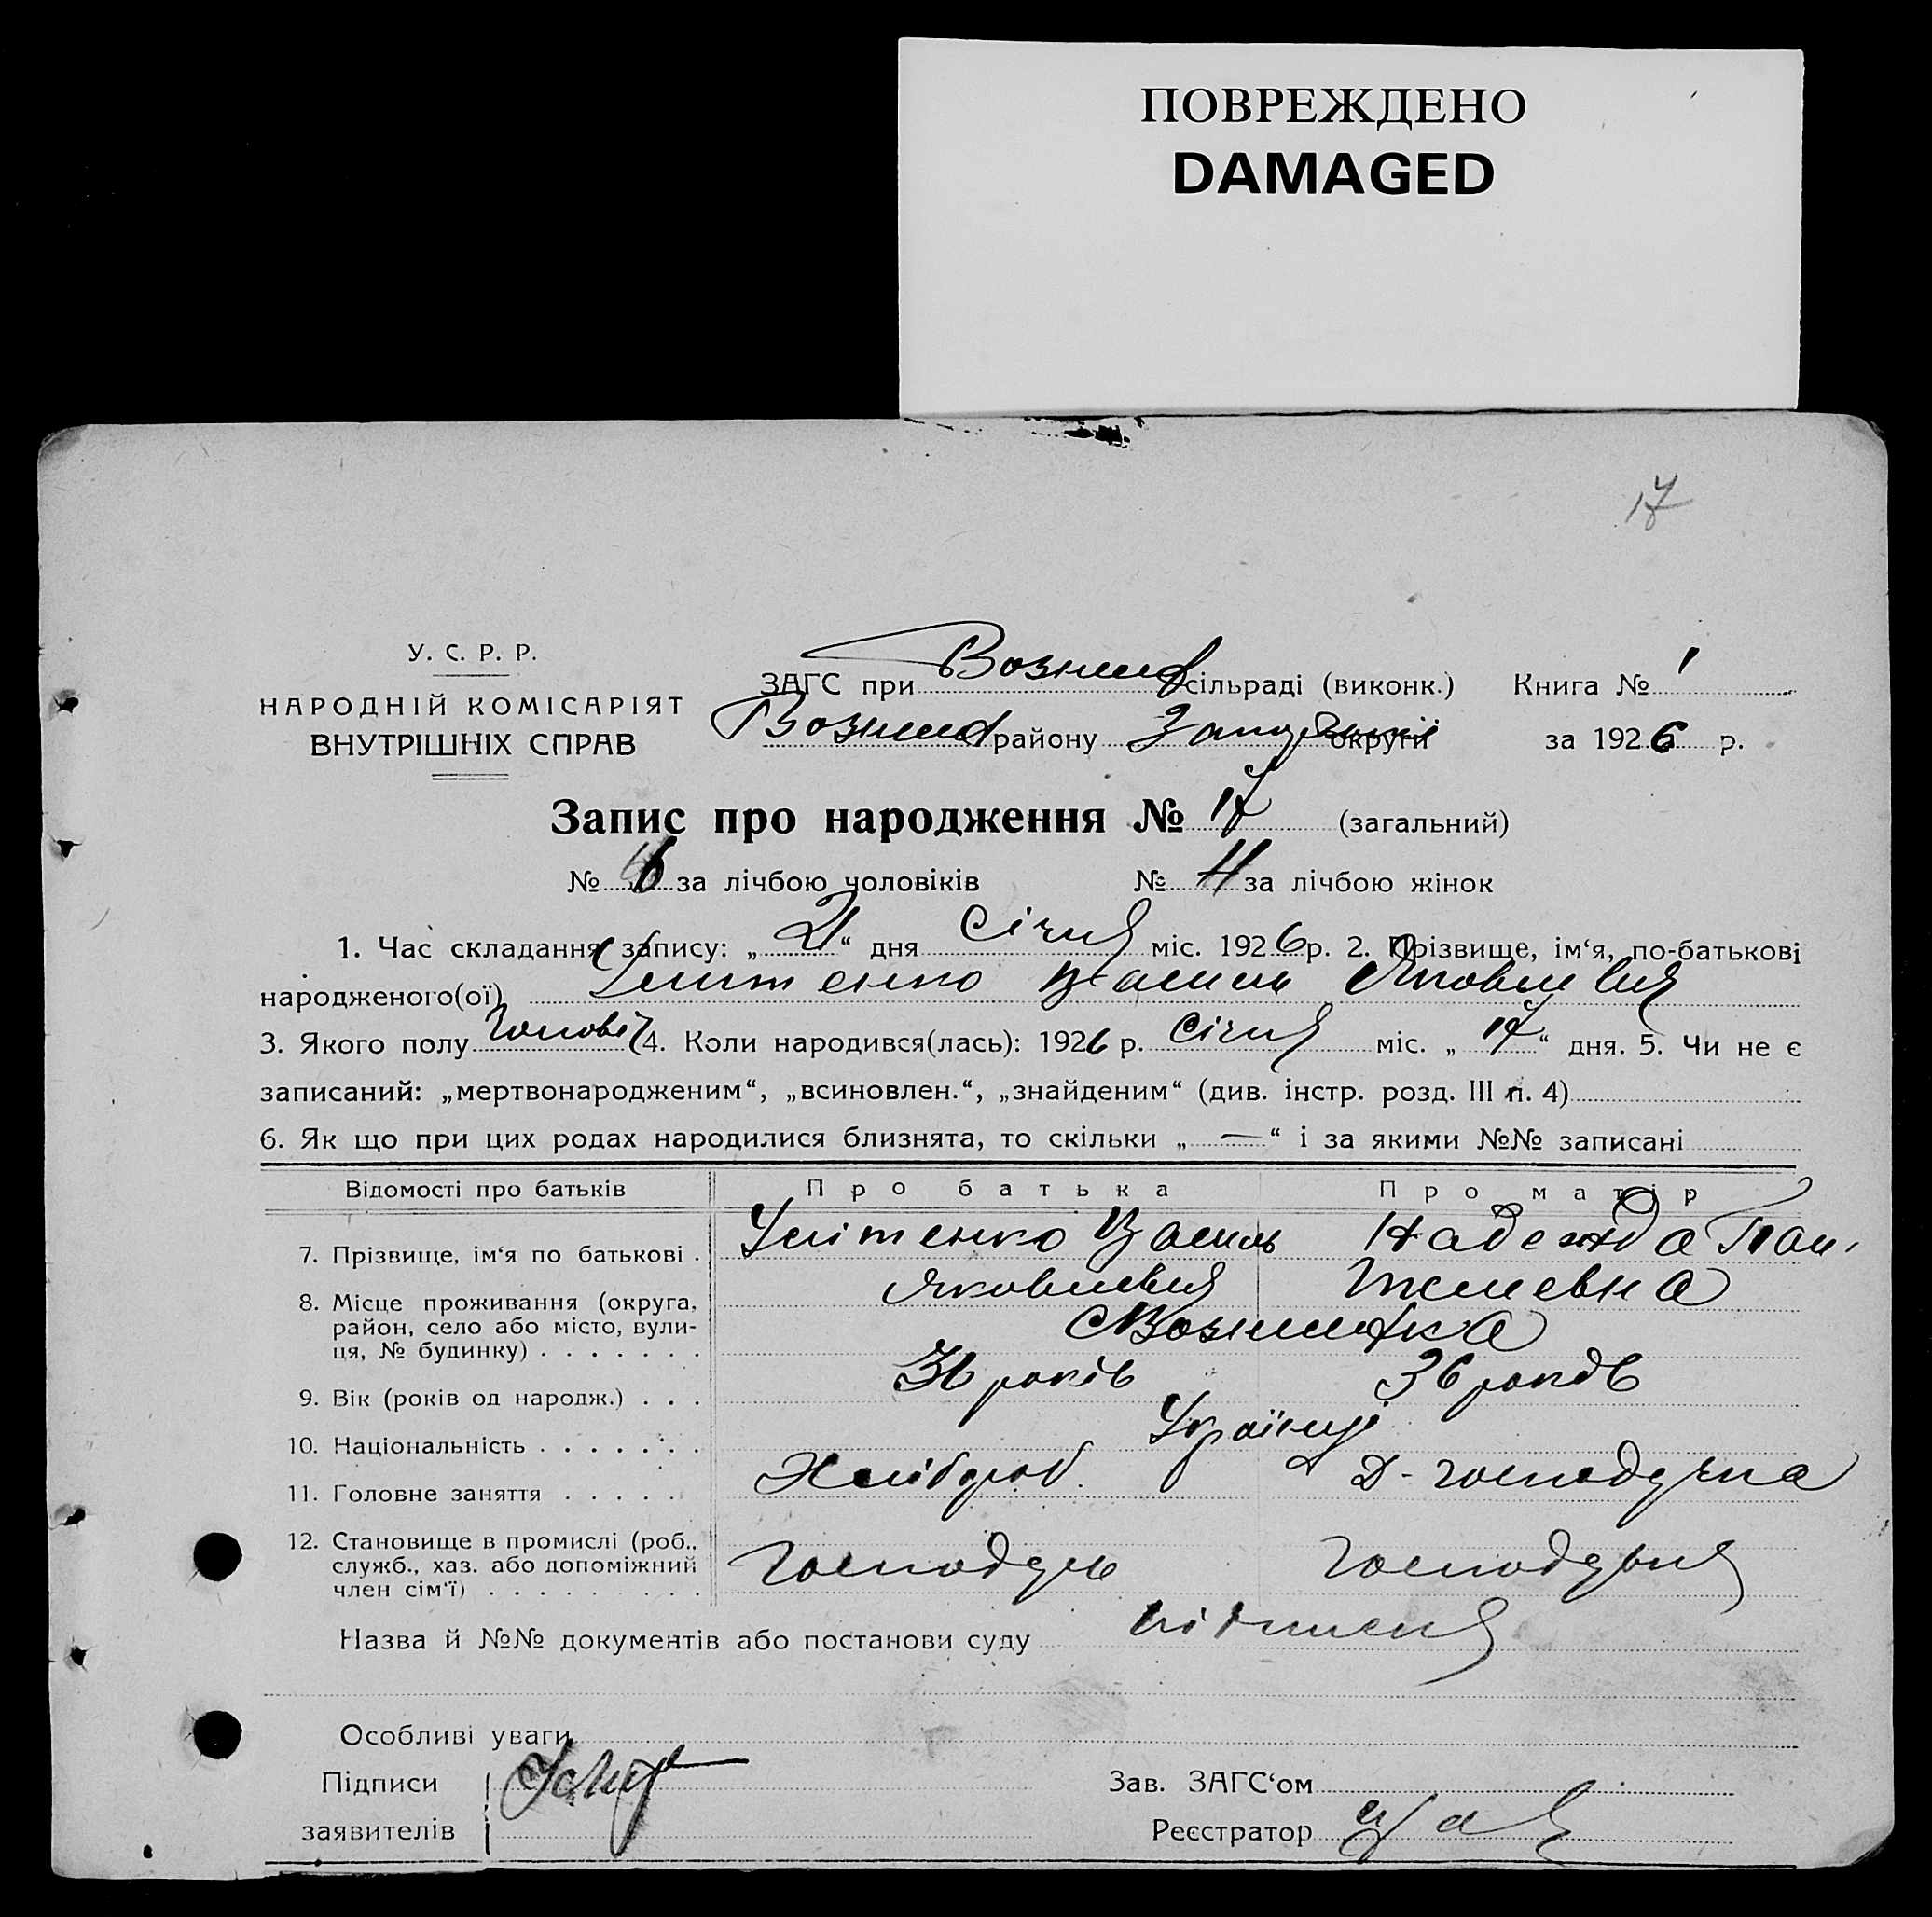 ПОВРЕЖДЕНО
DAMAGED
17
У. С. Р. Р.
НАРОДНІЙ КОМІСАРІЯТ
ВНУТРІШНІХ СПРАВ
ЗАГС при сільраді (виконк.) Книга № 1
району округи за 1926 р.
Запис про народження № 17 (загальний)
№ за лічбою чоловіків № за лічбою жінок
1. Час складання запису: „21“ дня Січня міс. 1926 р. 2. Прізвище, ім‘я, по-батькові
народженого(ої)
3. Якого полу 4. Коли народився(лась): 1926 р. Січня міс. „17“ дня. 5. Чи не є
записаний: „мертвонародженим“, „всиновлен.“, „знайденим“ (див. інстр. розд. III п. 4)
6. Як що при цих родах народилися близнята, то скільки „—“ і за якими №№ записані
Відомості про батьків Про батька Про матір
7. Прізвище, ім‘я по батькові . Василь Надежда
Яковлевич
8. Місце проживання (округа,
район, село або місто, вули-
ця, № будинку) . . . . . . .
9. Вік (років од народж.) . . . 36 років 36 років
10. Національність . . . . . . . Українці
11. Головне заняття . . . . . Хлібороб. Д-господарка
12. Становище в промислі (роб.,
служб., хаз. або допоміжний
член сім‘ї) . . . . . . . . . Господарь Господиня
Назва й №№ документів або постанови суду
Особливі уваги
Підписи Зав. ЗАГС‘ом
заявителів Реєстратор